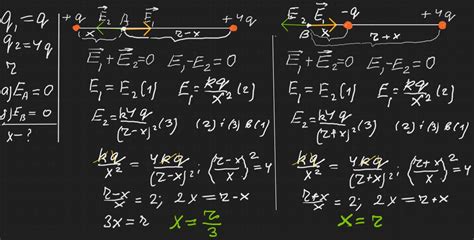 q₁ = q
q₂ = 4q
r
а) E_A = 0
б) E_B = 0
x - ?
+q E⃗₂ A E⃗₁ +4q
x r-x
E⃗₁ + E⃗₂ = 0 E₁ - E₂ = 0
E₁ = E₂ (1) E₁ = kq/x² (2)
E₂ = k4q/(r-x)² (3) (2) i (3) в (1)
kq/x² = 4kq/(r-x)² ; ((r-x)/x)² = 4
(r-x)/x = 2; 2x = r-x
3x = r x = r/3
E⃗₂ E⃗₁ -q +4q
B x r+x
E⃗₁ + E⃗₂ = 0 E₁ - E₂ = 0
E₁ = E₂ (1) E₁ = kq/x² (2)
E₂ = k4q/(r+x)² (3) (2) i (3) в (1)
kq/x² = 4kq/(r+x)² ; ((r+x)/x)² = 4
(r+x)/x = 2; 2x = r+x
x = r